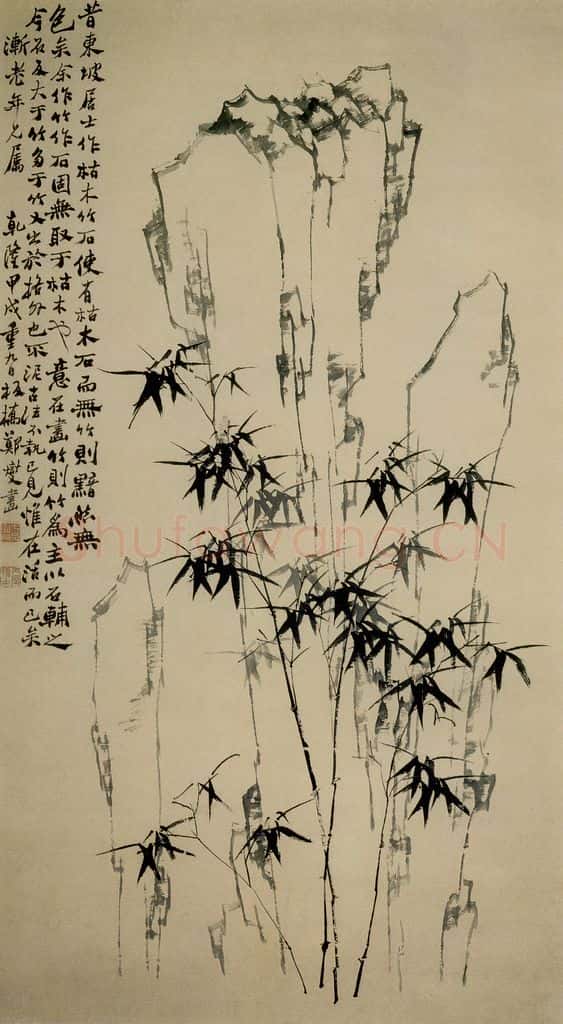 昔東坡居士作枯木竹石使有枯木石而無竹則黯然無
色矣余作竹作石固無取于枯木也意在畫竹則竹為主以石輔之
今石反大于竹多于竹又出於格外也不泥古法不執己見惟在活而已矣
漸老年兄屬 乾隆甲戌重九日板橋鄭燮畫
Shufawang.CN